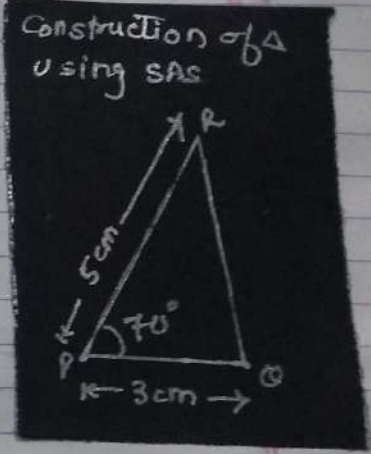 Construction of Δ
using SAS
R
5cm
70°
P
Q
3cm